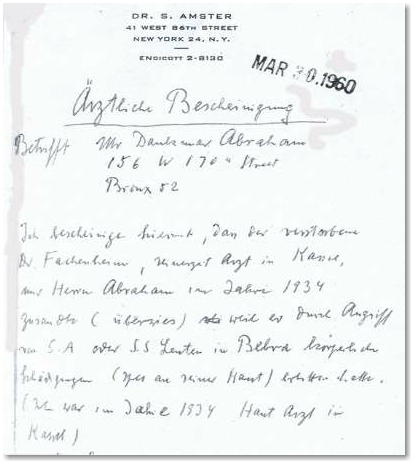 DR. S. AMSTER
41 WEST 86TH STREET
NEW YORK 24, N.Y.
ENDICOTT 2-8130
MAR 30 1960
Ärztliche Bescheinigung
Betrifft Mr Dankmar Abraham
156 W 170th Street
Bronx 52
Ich bescheinige hiermit, dass der verstorbene
Dr. Fackenheim, seinerzeit Arzt in Kassel,
mir Herrn Abraham im Jahre 1934
zusandte (überwies) weil er durch Angriff
von S.A oder S.S Leuten in Bebra körperliche
Schädigungen (an seiner Haut) erlitten hatte.
(Ich war im Jahre 1934 Hautarzt in
Kassel)